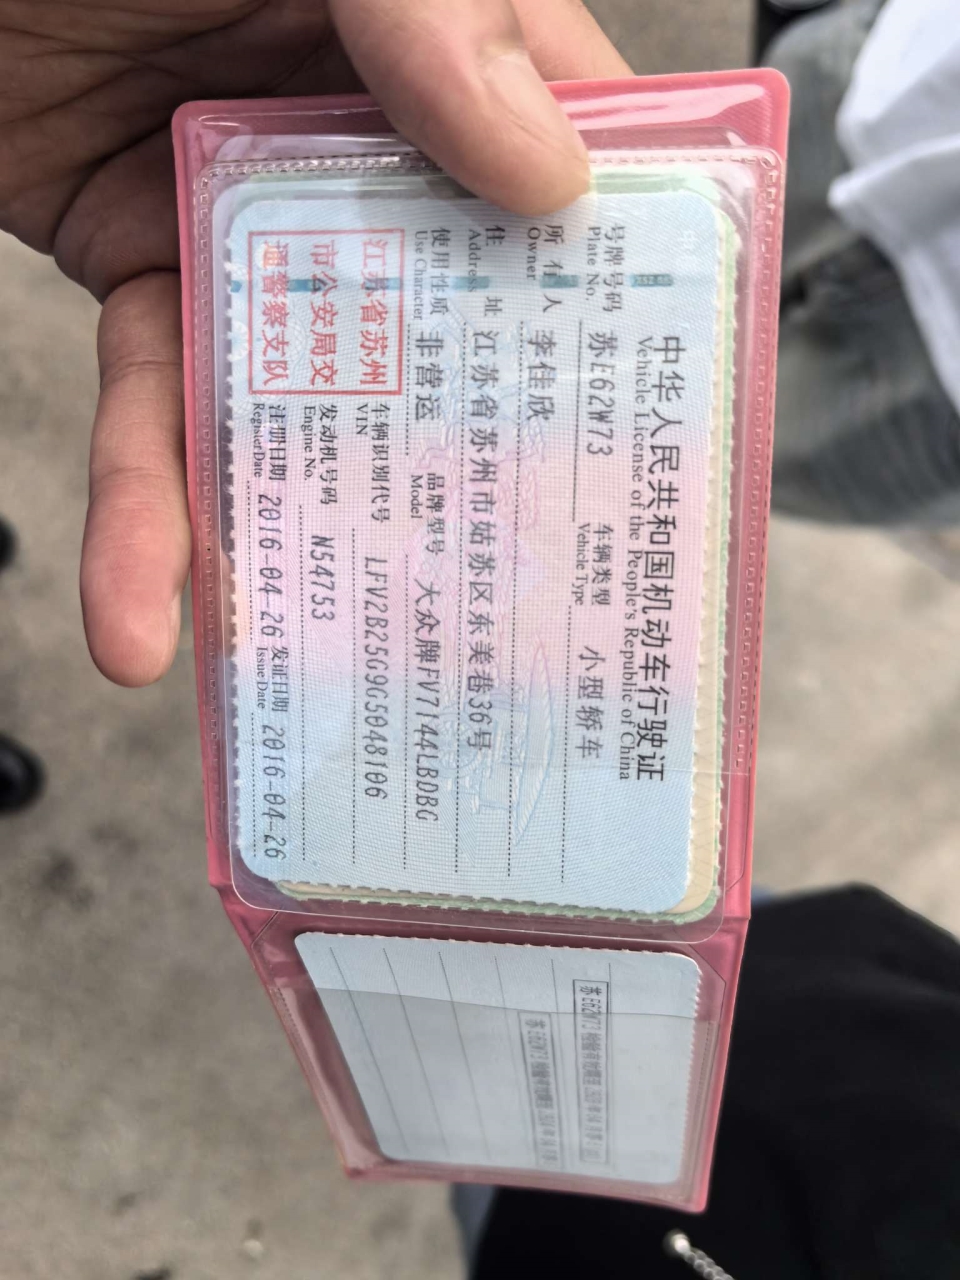 中华人民共和国机动车行驶证
Vehicle License of the People's Republic of China
号牌号码 苏E62W73 车辆类型 小型轿车
Plate No. Vehicle Type
所有人 李佳欣
Owner
住址 江苏省苏州市姑苏区东美巷36号
Address
使用性质 非营运 品牌型号 大众牌FV7144LBDBG
Use Character Model
江苏省苏州
市公安局交
通警察支队
车辆识别代号 LFV2B25G9G5048106
VIN
发动机号码 N54753
Engine No.
注册日期 2016-04-26 发证日期 2016-04-26
Register Date Issue Date
苏E62W73
苏E62W73